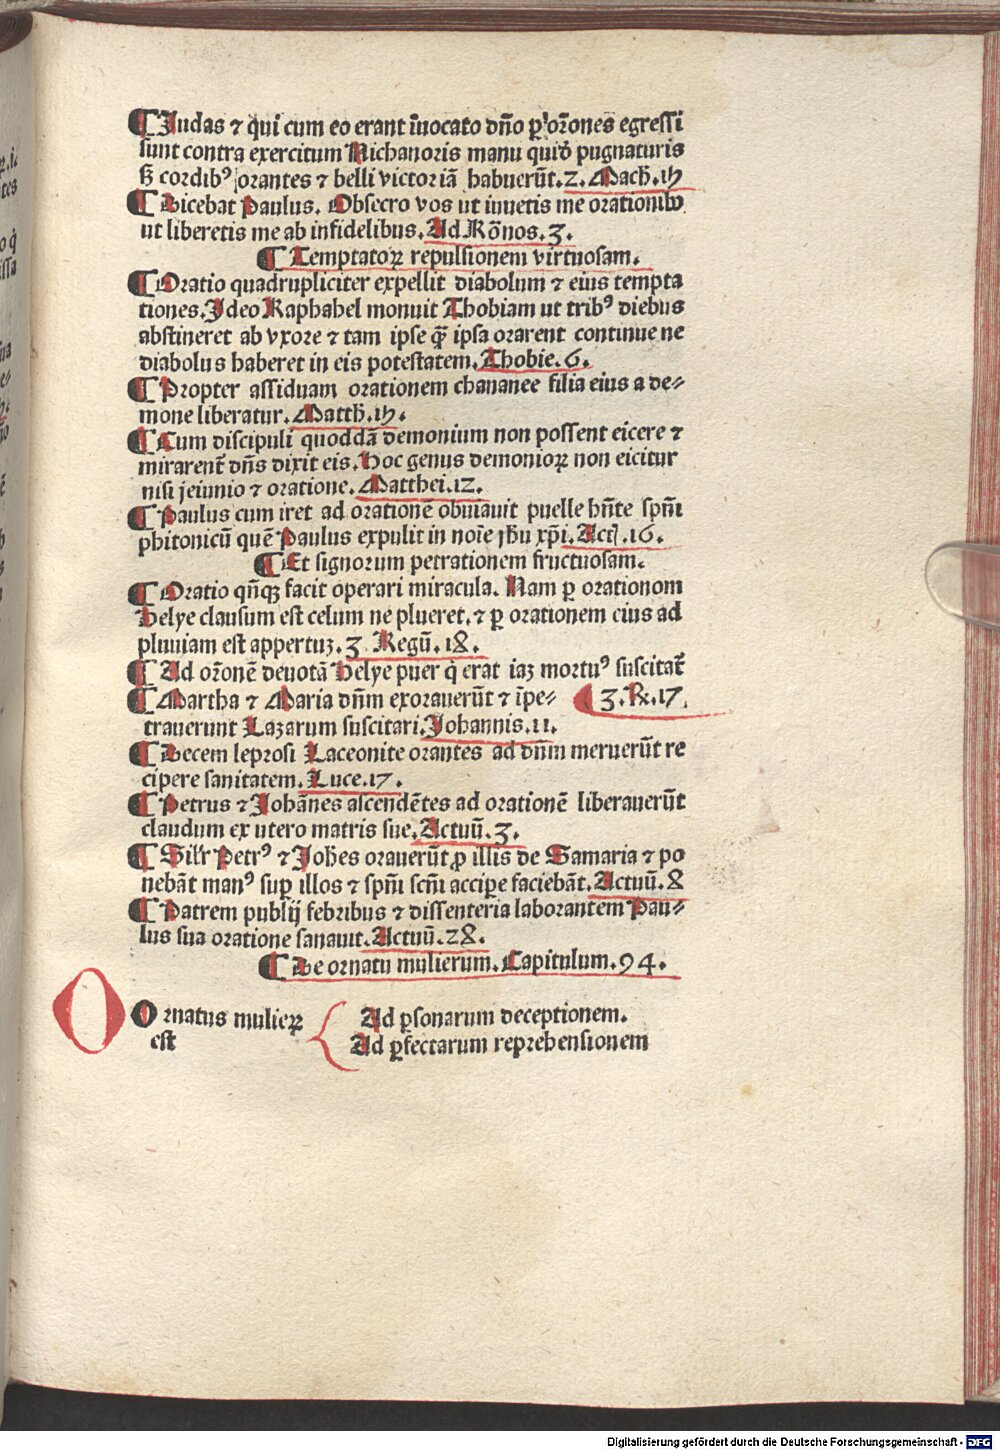 ¶ Judas ⁊ q̇ui cum eo erant īuocato dn̄o ꝑ orōnes egressi
sunt contra exercitum Nichanoris manu quid̄ pugnaturis
sꝫ cordibꝰ orantes ⁊ belli victoriā habuerūt. 2. Mach. 15
¶ Dicebat Paulus. Obsecro vos ut iuuetis me orationibꝰ
ut liberetis me ab infidelibus. Ad Rōnos. 3.
¶ Temptatoꝝ repulsionem virtuosam.
¶ Oratio quadrupliciter expellit diabolum ⁊ eius tempta
tiones. Ideo Raphahel monuit Thobiam ut tribꝰ diebus
abstineret ab vxore ⁊ tam ipse qꝫ ipsa orarent continue ne
diabolus haberet in eis potestatem. Thobie. 6.
¶ Propter assiduam orationem chananee filia eius a de⸗
mone liberatur. Matth. 15.
¶ Cum discipuli quoddā demonium non possent eicere ⁊
mirarent̄ dn̄s dixit eis. Hoc genus demonioꝝ non eicitur
nisi jeiunio ⁊ oratione. Matthei. 12.
¶ Paulus cum iret ad orationē obuiauit puelle hn̄te spm̄
phitonicū quē Paulus expulit in noīe jhū xp̄i. Act. 16.
¶ Et signorum petrationem fructuosam.
¶ Oratio qn̄qꝫ facit operari miracula. Nam ꝑ orationom
Helye clausum est celum ne plueret. ⁊ ꝑ orationem eius ad
pluuiam est appertuꝫ. 3 Regū. 18.
¶ Ad orōnē deuotā Helye puer q̇ erat iaꝫ mortuꝰ suscitat̄
¶ Martha ⁊ Maria dn̄m exorauerūt ⁊ īpe⸗ ¶ 3. Rꝫ. 17.
trauerunt Lazarum suscitari. Johannis. 11.
¶ Decem leprosi Laceonite orantes ad dn̄m meruerūt re
cipere sanitatem. Luce. 17.
¶ Petrus ⁊ Johānes ascendētes ad orationē liberauerūt
claudum ex utero matris sue. Actuū. 3.
¶ Silr̄ Petrꝰ ⁊ Joh̄es orauerūt ꝓ illis de Samaria ⁊ po
nebāt manꝰ sup illos ⁊ spm̄ scm̄ accipe faciebāt. Actuū. 8
¶ Patrem publij febribus ⁊ dissenteria laborantem Pau⸗
lus sua oratione sanauit. Actuū. 28.
¶ De ornatu mulierum. Capitulum. 94.
O Ornatus mulieꝝ Ad ꝑsonarum deceptionem.
est Ad ꝑfectarum reprehensionem
Digitalisierung gefördert durch die Deutsche Forschungsgemeinschaft - DFG